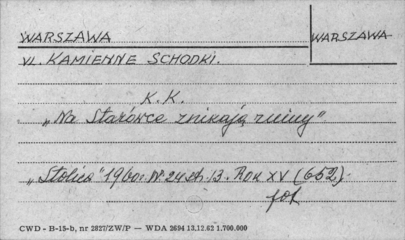 WARSZAWA
WARSZAWA-
ul. KAMIENNE SCHODKI.
K. K.
„Na Starówce znikają ruiny"
„Stolica" 1960r. Nr 24 str. 13. Rok XV (652)-
fot
CWD - B-15-b, nr 2827/ZW/P — WDA 2694 13.12.62 1.700.000